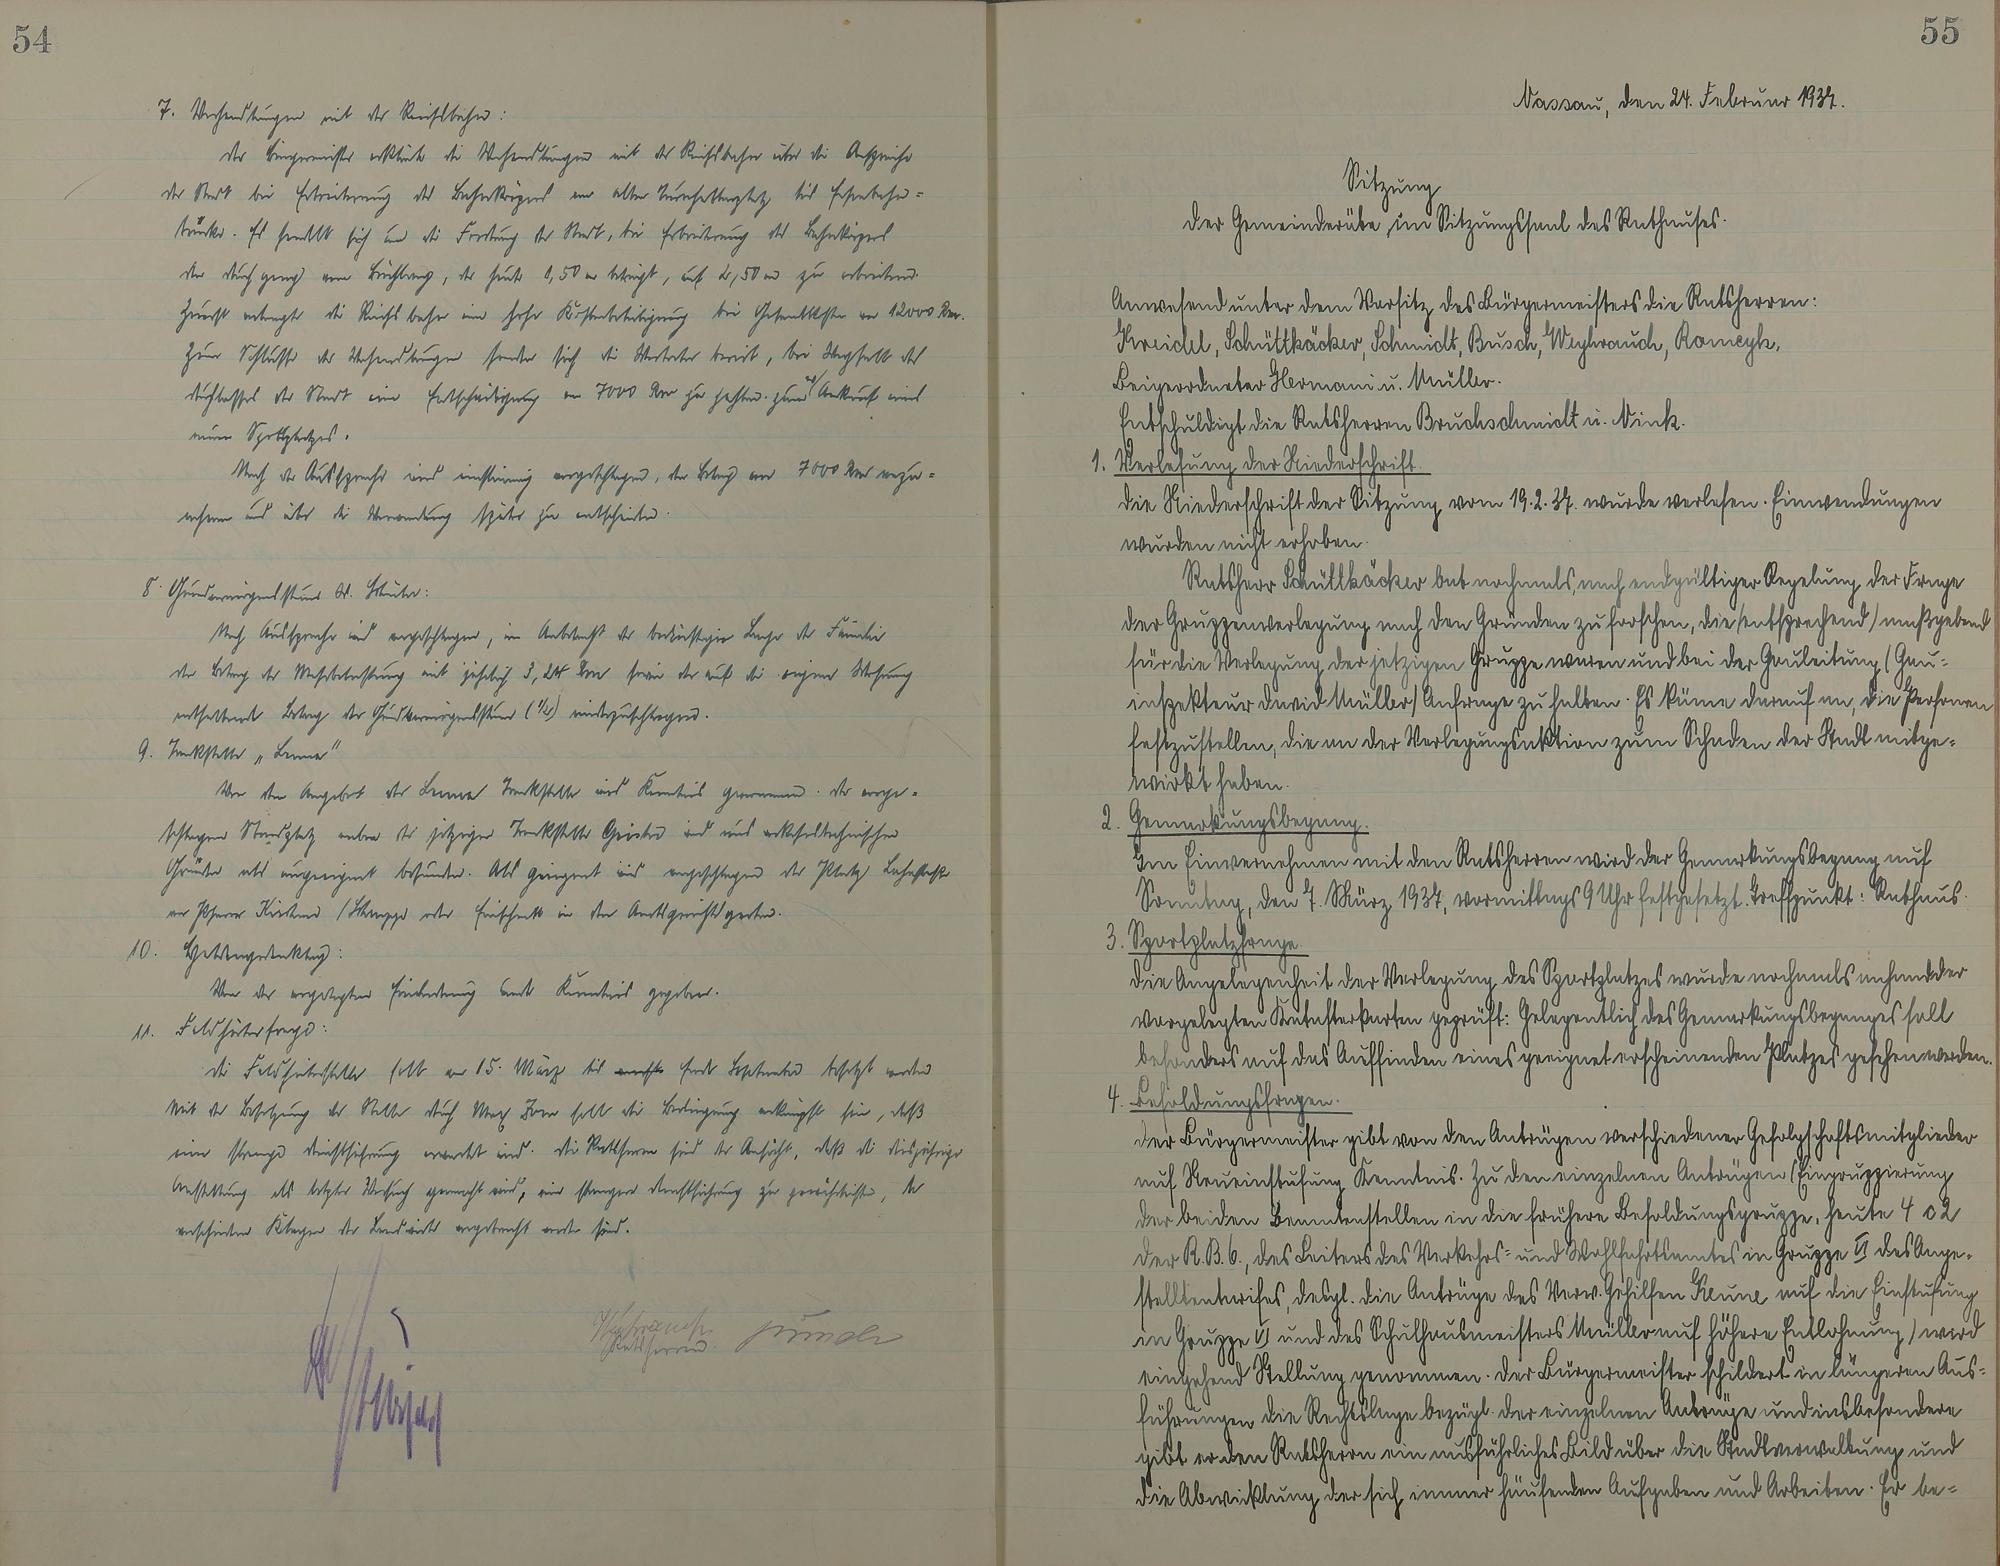 54
7. Verhandlungen mit der Reichsbahn:
Der Bürgermeister erklärte die Verhandlungen mit der Reichsbahn über die Ansprüche
der Stadt bei Erbreiterung des Bahnkörpers am alten Turnhallenplatz bis Eisenbahn=
brücke. Es handelt sich um die Forderung der Stadt, bei Erbreiterung des Bahnkörpers
den Durchgang vom Bachberg, der heute 1,50 m beträgt, auf 2,50 m zu erbreitern.
Zuerst verlangte die Reichsbahn eine hohe Kostenbeteiligung bei Gesamtkosten von 12000 Rm.
Zum Schlusse der Verhandlungen fanden sich die Vertreter bereit, bei Wegfall des
Durchlasses der Stadt eine Entschädigung von 7000 Rm zu zahlen zum Ankauf eines
neuen Sportplatzes.
Nach der Aussprache wird einstimmig vorgeschlagen, den Betrag von 7000 Rm anzu=
nehmen und über die Verwendung später zu entscheiden.
8. Grundvermögenssteuer W.
Nach Aussprache wird vorgeschlagen, in Anbetracht der bedürftigen Lage der Familie
den Betrag der Mehrbelastung mit jährlich 3,24 Rm sowie der auf die eigene Wohnung
entfallende Betrag der Grundvermögenssteuer (1/2) niederzuschlagen.
9. Tankstelle „
Von dem Angebot der Tankstelle wird Kenntnis genommen. Der vorge=
schlagene Standplatz neben der jetzigen Tankstelle wird aus verkehrstechnischen
Gründen als ungeeignet befunden. Als geeignet wird vorgeschlagen der Platz Bahnhofstr.
oder Einschnitt in den Amtsgerichtsgarten.
10. Heldengedenktag:
Von der vorgelegten Einladung wurde Kenntnis gegeben.
11. Feldhüterfrage:
Die Feldhüterstelle soll vom 15. März bis Ende September besetzt werden
Mit der Besetzung der Stelle durch Max soll die Bedingung verknüpft sein, daß
eine strenge Dienstführung erwartet wird. Die Ratsherren sind der Ansicht, daß die diesjährige
Anstellung als letzter Versuch gemacht wird, eine strengere Dienstführung zu gewährleisten, da
verschiedene Klagen der Landwirte vorgebracht worden sind.
Weyhrauch
Ratsherren.
55
Nassau, den 24. Februar 1937.
Sitzung
der Gemeinderäte im Sitzungssaal des Rathauses.
Anwesend unter dem Vorsitz des Bürgermeisters die Ratsherren:
Kreidel, Schüttkäcker, Schmidt, Busch, Weyhrauch, Romeyk,
Beigeordneter Hermani u. Müller.
Entschuldigt die Ratsherren Bruchschmidt u. Nink.
1. Verlesung der Niederschrift.
Die Niederschrift der Sitzung vom 19.2.37. wurde verlesen. Einwendungen
wurden nicht erhoben.
Ratsherr Schüttkäcker bat nochmals, nach endgültiger Regelung der Frage
der Gruppenverlegung nach den Gründen zu forschen, die (entsprechend) maßgebend
für die Verlegung der jetzigen Gruppe waren und bei der Gauleitung (Gau=
inspekteur David Müller) Anfrage zu halten. Es käme darauf an, die Personen
festzustellen, die an der Verlegungsaktion zum Schaden der Stadt mitge=
wirkt haben.
2. Gemarkungsbegang.
Im Einvernehmen mit den Ratsherren wird der Gemarkungsbegang auf
Sonntag, den 7. März 1937, vormittags 9 Uhr festgesetzt. Treffpunkt: Rathaus.
3. Sportplatzfrage.
Die Angelegenheit der Verlegung des Sportplatzes wurde nochmals anhand der
vorgelegten Katasterkarten geprüft: Gelegentlich des Gemarkungsbeganges soll
besonders auf das Auffinden eines geeignet erscheinenden Platzes gesehen werden.
4. Besoldungsfragen.
Der Bürgermeister gibt von den Anträgen verschiedener Gefolgschaftsmitglieder
auf Neueinstufung Kenntnis. Zu den einzelnen Anträgen (Eingruppierung
der beiden Beamtenstellen in die frühere Besoldungsgruppe, heute 4 c 2
der R.B.G., des Leiters des Verkehrs= und Wohlfahrtsamtes in Gruppe VI des Ange=
stelltentarifes, desgl. die Anträge des Verw. Gehilfen Keune auf die Einstufung
in Gruppe VI und des Schulhausmeisters Müller auf höhere Entlohnung) wird
eingehend Stellung genommen. Der Bürgermeister schildert in längeren Aus=
führungen die Rechtslage bezügl. der einzelnen Anträge und insbesondere
gibt er den Ratsherrn ein ausführliches Bild über die Stadtverwaltung und
die Abwicklung der sich immer häufenden Aufgaben und Arbeiten. Er be=